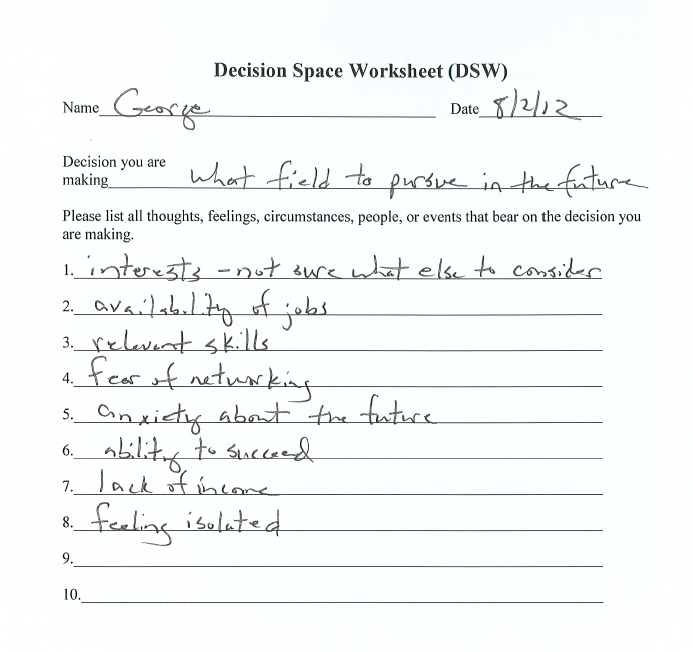 Decision Space Worksheet (DSW)
Name George Date 8/2/12
Decision you are
making what field to pursue in the future
Please list all thoughts, feelings, circumstances, people, or events that bear on the decision you
are making.
1. interests - not sure what else to consider
2. availability of jobs
3. relevent skills
4. fear of networking
5. anxiety about the future
6. ability to succeed
7. lack of income
8. feeling isolated
9.
10.